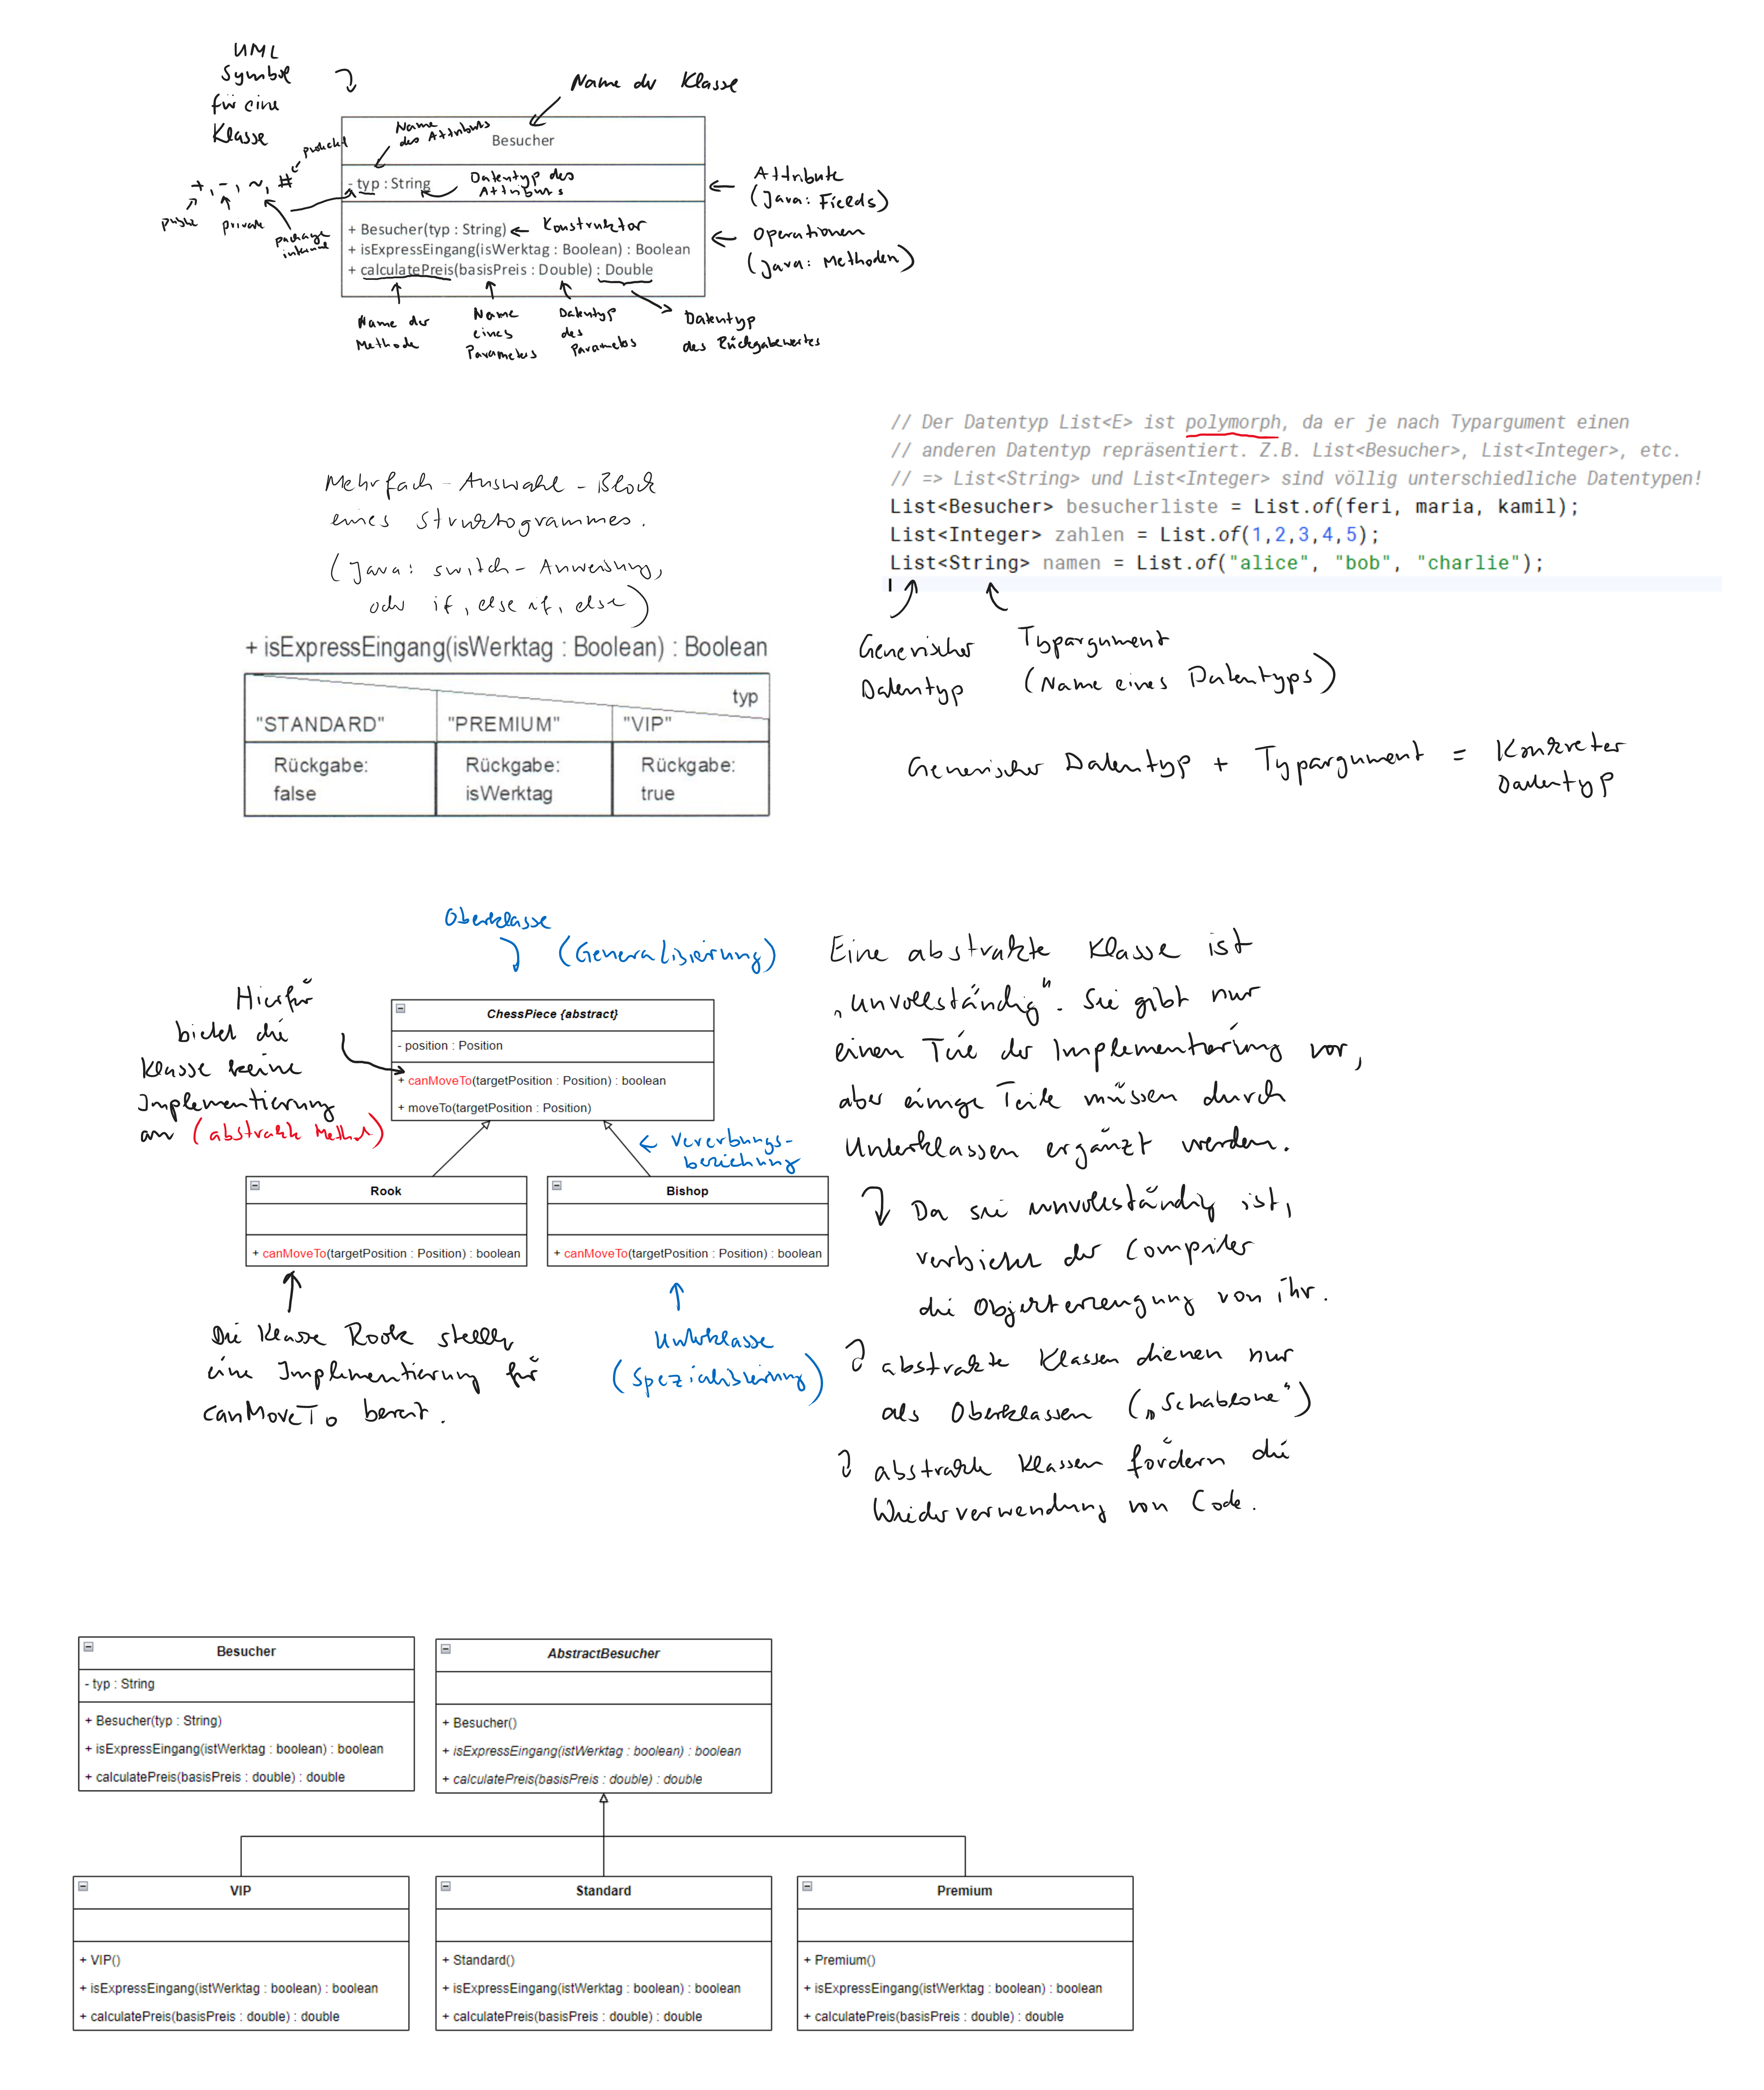 UML
Symbol
für eine
Klasse
Name der Klasse
protected
+, -, ~, #
public
private
package
internal
Name
des Attributs
Besucher
- typ : String
Datentyp des
Attributs
Attribute
(Java: Fields)
+ Besucher(typ : String)
Konstruktor
+ isExpressEingang(isWerktag : Boolean) : Boolean
+ calculatePreis(basisPreis : Double) : Double
Operationen
(Java: Methoden)
Name der
Methode
Name
eines
Parameters
Datentyp
des
Parameters
Datentyp
des Rückgabewertes
// Der Datentyp List<E> ist polymorph, da er je nach Typargument einen
// anderen Datentyp repräsentiert. Z.B. List<Besucher>, List<Integer>, etc.
// => List<String> und List<Integer> sind völlig unterschiedliche Datentypen!
List<Besucher> besucherliste = List.of(feri, maria, kamil);
List<Integer> zahlen = List.of(1,2,3,4,5);
List<String> namen = List.of("alice", "bob", "charlie");
Generischer
Datentyp
Typargument
(Name eines Datentyps)
Generischer Datentyp + Typargument = Konkreter
Datentyp
Mehrfach-Auswahl-Block
eines Struktogrammes.
(Java: switch-Anweisung,
oder if, else if, else)
+ isExpressEingang(isWerktag : Boolean) : Boolean
typ
"STANDARD"
"PREMIUM"
"VIP"
Rückgabe:
false
Rückgabe:
isWerktag
Rückgabe:
true
Oberklasse
(Generalisierung)
Hierfür
bietet die
Klasse keine
Implementierung
an (abstrakte Method)
ChessPiece {abstract}
- position : Position
+ canMoveTo(targetPosition : Position) : boolean
+ moveTo(targetPosition : Position)
Vererbungs-
beziehung
Rook
+ canMoveTo(targetPosition : Position) : boolean
Bishop
+ canMoveTo(targetPosition : Position) : boolean
Die Klasse Rook stellt
eine Implementierung für
canMoveTo bereit.
Unterklasse
(Spezialisierung)
Eine abstrakte Klasse ist
„unvollständig". Sie gibt nur
einen Teil der Implementierung vor,
aber einige Teile müssen durch
Unterklassen ergänzt werden.
Da sie unvollständig ist,
verbietet der Compiler
die Objekterzeugung von ihr.
abstrakte Klassen dienen nur
als Oberklassen („Schablone")
abstrakte Klassen fördern die
Wiederverwendung von Code.
Besucher
- typ : String
+ Besucher(typ : String)
+ isExpressEingang(istWerktag : boolean) : boolean
+ calculatePreis(basisPreis : double) : double
AbstractBesucher
+ Besucher()
+ isExpressEingang(istWerktag : boolean) : boolean
+ calculatePreis(basisPreis : double) : double
VIP
+ VIP()
+ isExpressEingang(istWerktag : boolean) : boolean
+ calculatePreis(basisPreis : double) : double
Standard
+ Standard()
+ isExpressEingang(istWerktag : boolean) : boolean
+ calculatePreis(basisPreis : double) : double
Premium
+ Premium()
+ isExpressEingang(istWerktag : boolean) : boolean
+ calculatePreis(basisPreis : double) : double